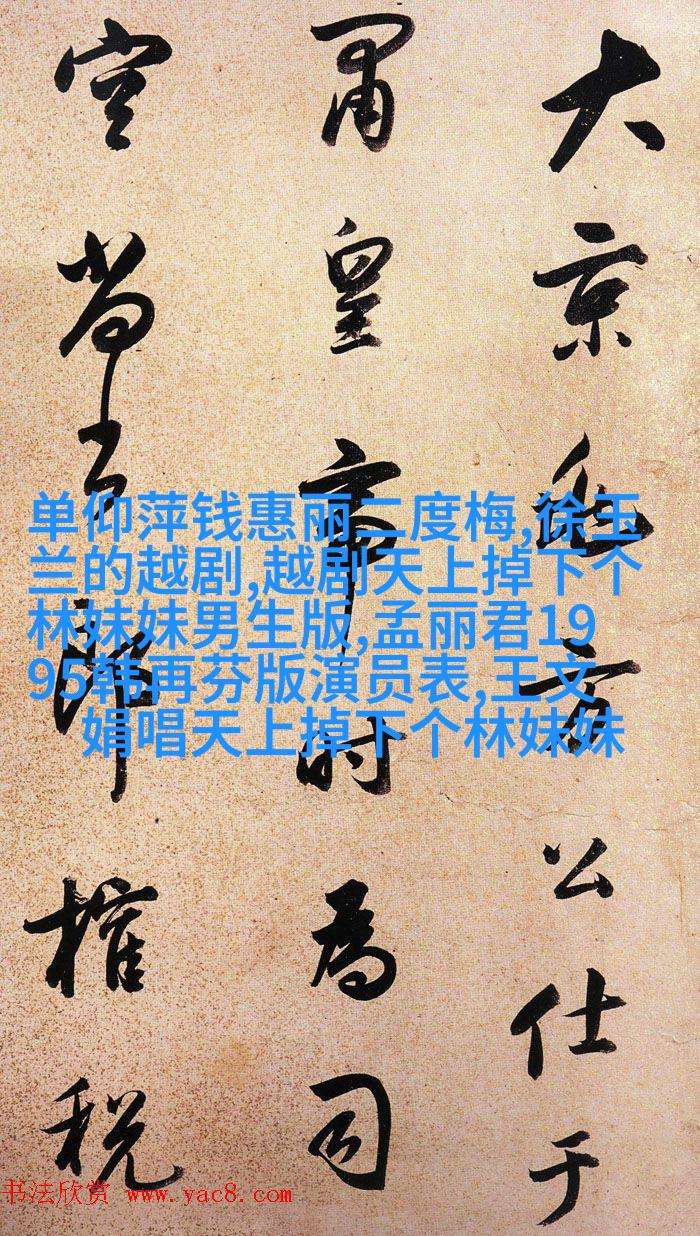 大京兆公仕于
肅皇帝时為司
空尚書郎榷税
单仰萍钱惠丽二度梅,徐玉
兰的越剧,越剧天上掉下个
林妹妹男生版,孟丽君19
95韩再芬版演员表,王文
娟唱天上掉下个林妹妹
书法欣赏 www.yac8.com